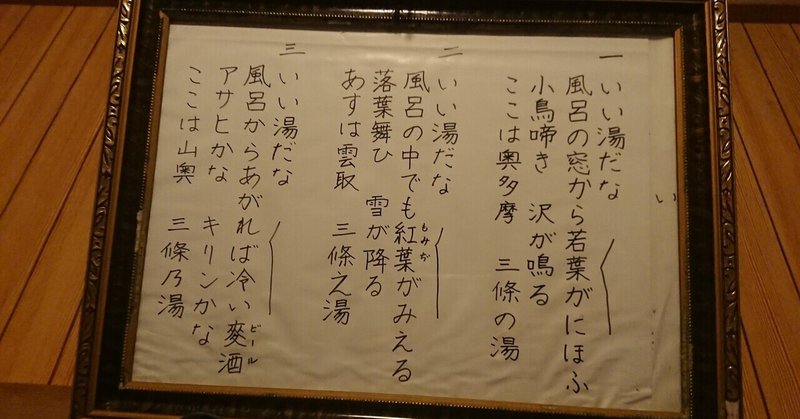 い
一 いい湯だな 〱
風呂の窓から若葉がにほふ
小鳥啼き 沢が鳴る
ここは奥多摩 三條の湯
二 いい湯だな 〱
風呂の中でも紅葉がみえる
もみぢ
落葉舞ひ 雪が降る
あすは雲取 三條之湯
三 いい湯だな 〱
風呂からあがれば冷い麥酒
ビール
アサヒかな キリンかな
ここは山奥 三條乃湯